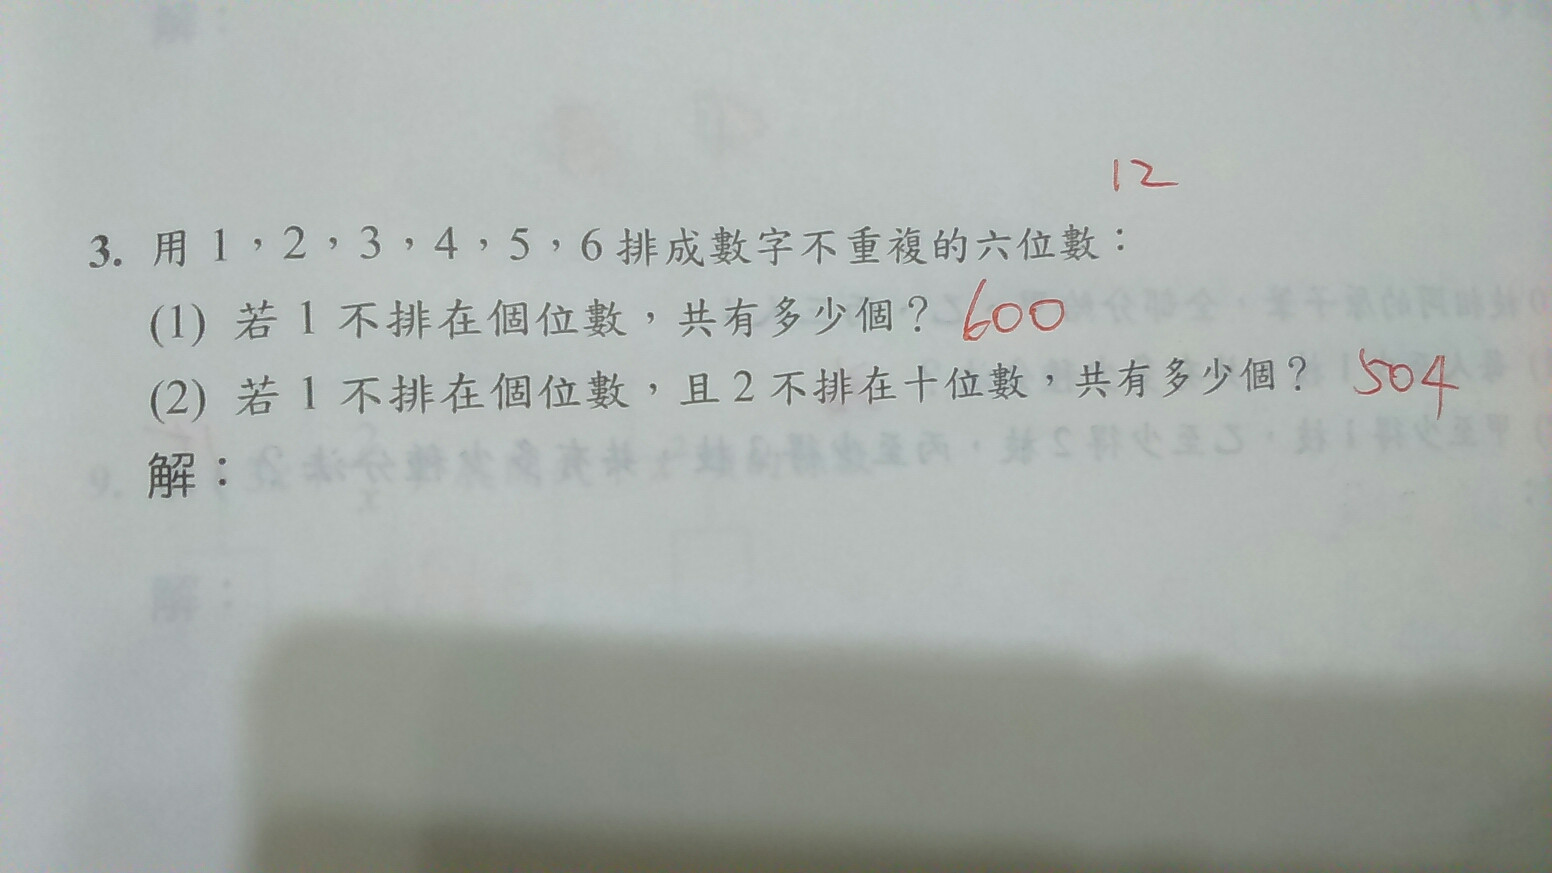 12
3. 用 1，2，3，4，5，6 排成數字不重複的六位數：
(1) 若 1 不排在個位數，共有多少個？ 600
(2) 若 1 不排在個位數，且 2 不排在十位數，共有多少個？ 504
解：